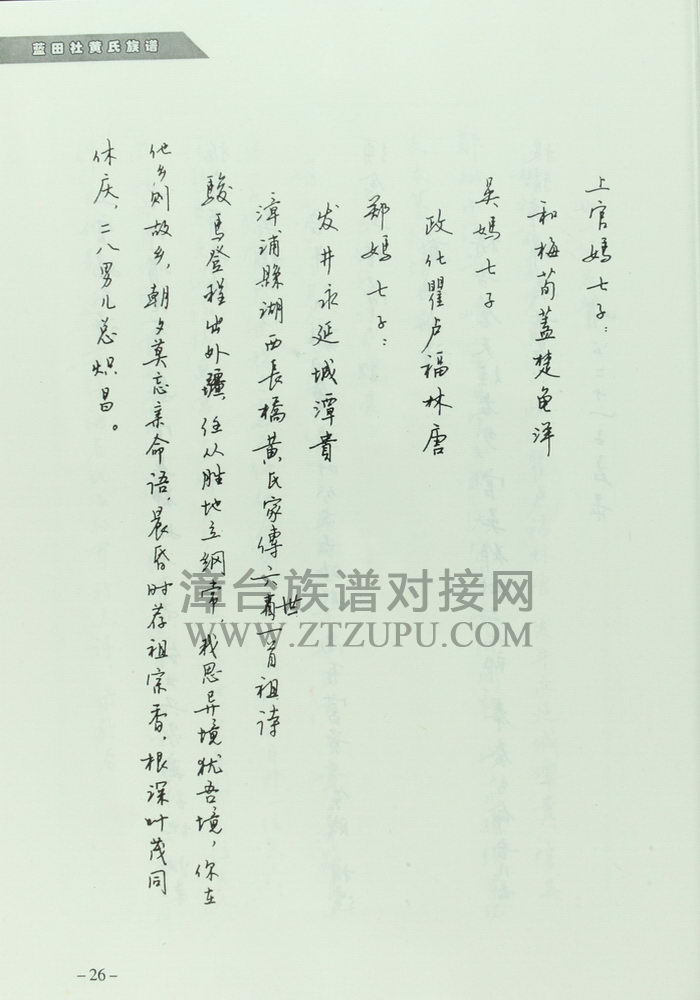 蓝田社黄氏族谱
上官媽七子:
和梅荀蓋楚龟洋
吴媽七子
政化瞿卢福林唐
郑媽七子:
发井永延城潭貴
漳浦縣湖西長橋黄氏家傳六世一首祖诗
駿馬登程出外疆,任从胜地立纲常,我思异境犹吾境,你在
他乡则故乡,朝夕莫忘亲命语,晨昏时荐祖宗香,根深叶茂同
休庆,二八男儿总炽昌。
漳台族谱对接网
WWW.ZTZUPU.COM
-26-